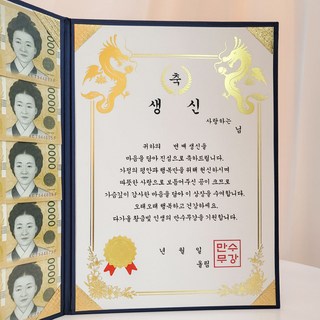 축
생 신
사랑하는
님
귀하의 번 째 생신을
마음을 담아 진심으로 축하드립니다.
가정의 평안과 행복만을 위해 헌신하시며
따뜻한 사랑으로 보듬어주신 공이 크므로
가슴깊이 감사한 마음을 담아 이 상장을 수여합니다.
오래오래 행복하고 건강하세요.
다가올 황금빛 인생의 만수무강을 기원합니다.
년 월 일
올림
만수
무강